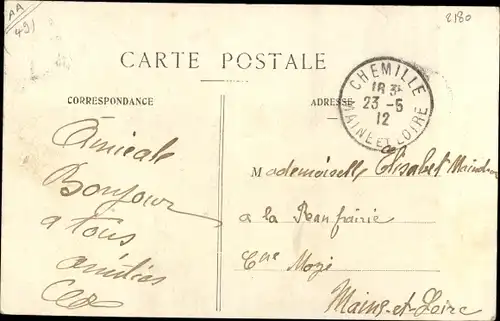 AA
(49)
2180
CARTE POSTALE
CORRESPONDANCE
ADRESSE
CHEMILLÉ
18 35
23-5
12
MAINE ET LOIRE
Amicale
Bonjour
a tous
amitiés
Mademoiselle Elisabet
a la
Cne Mozé
Maine-et-Loire